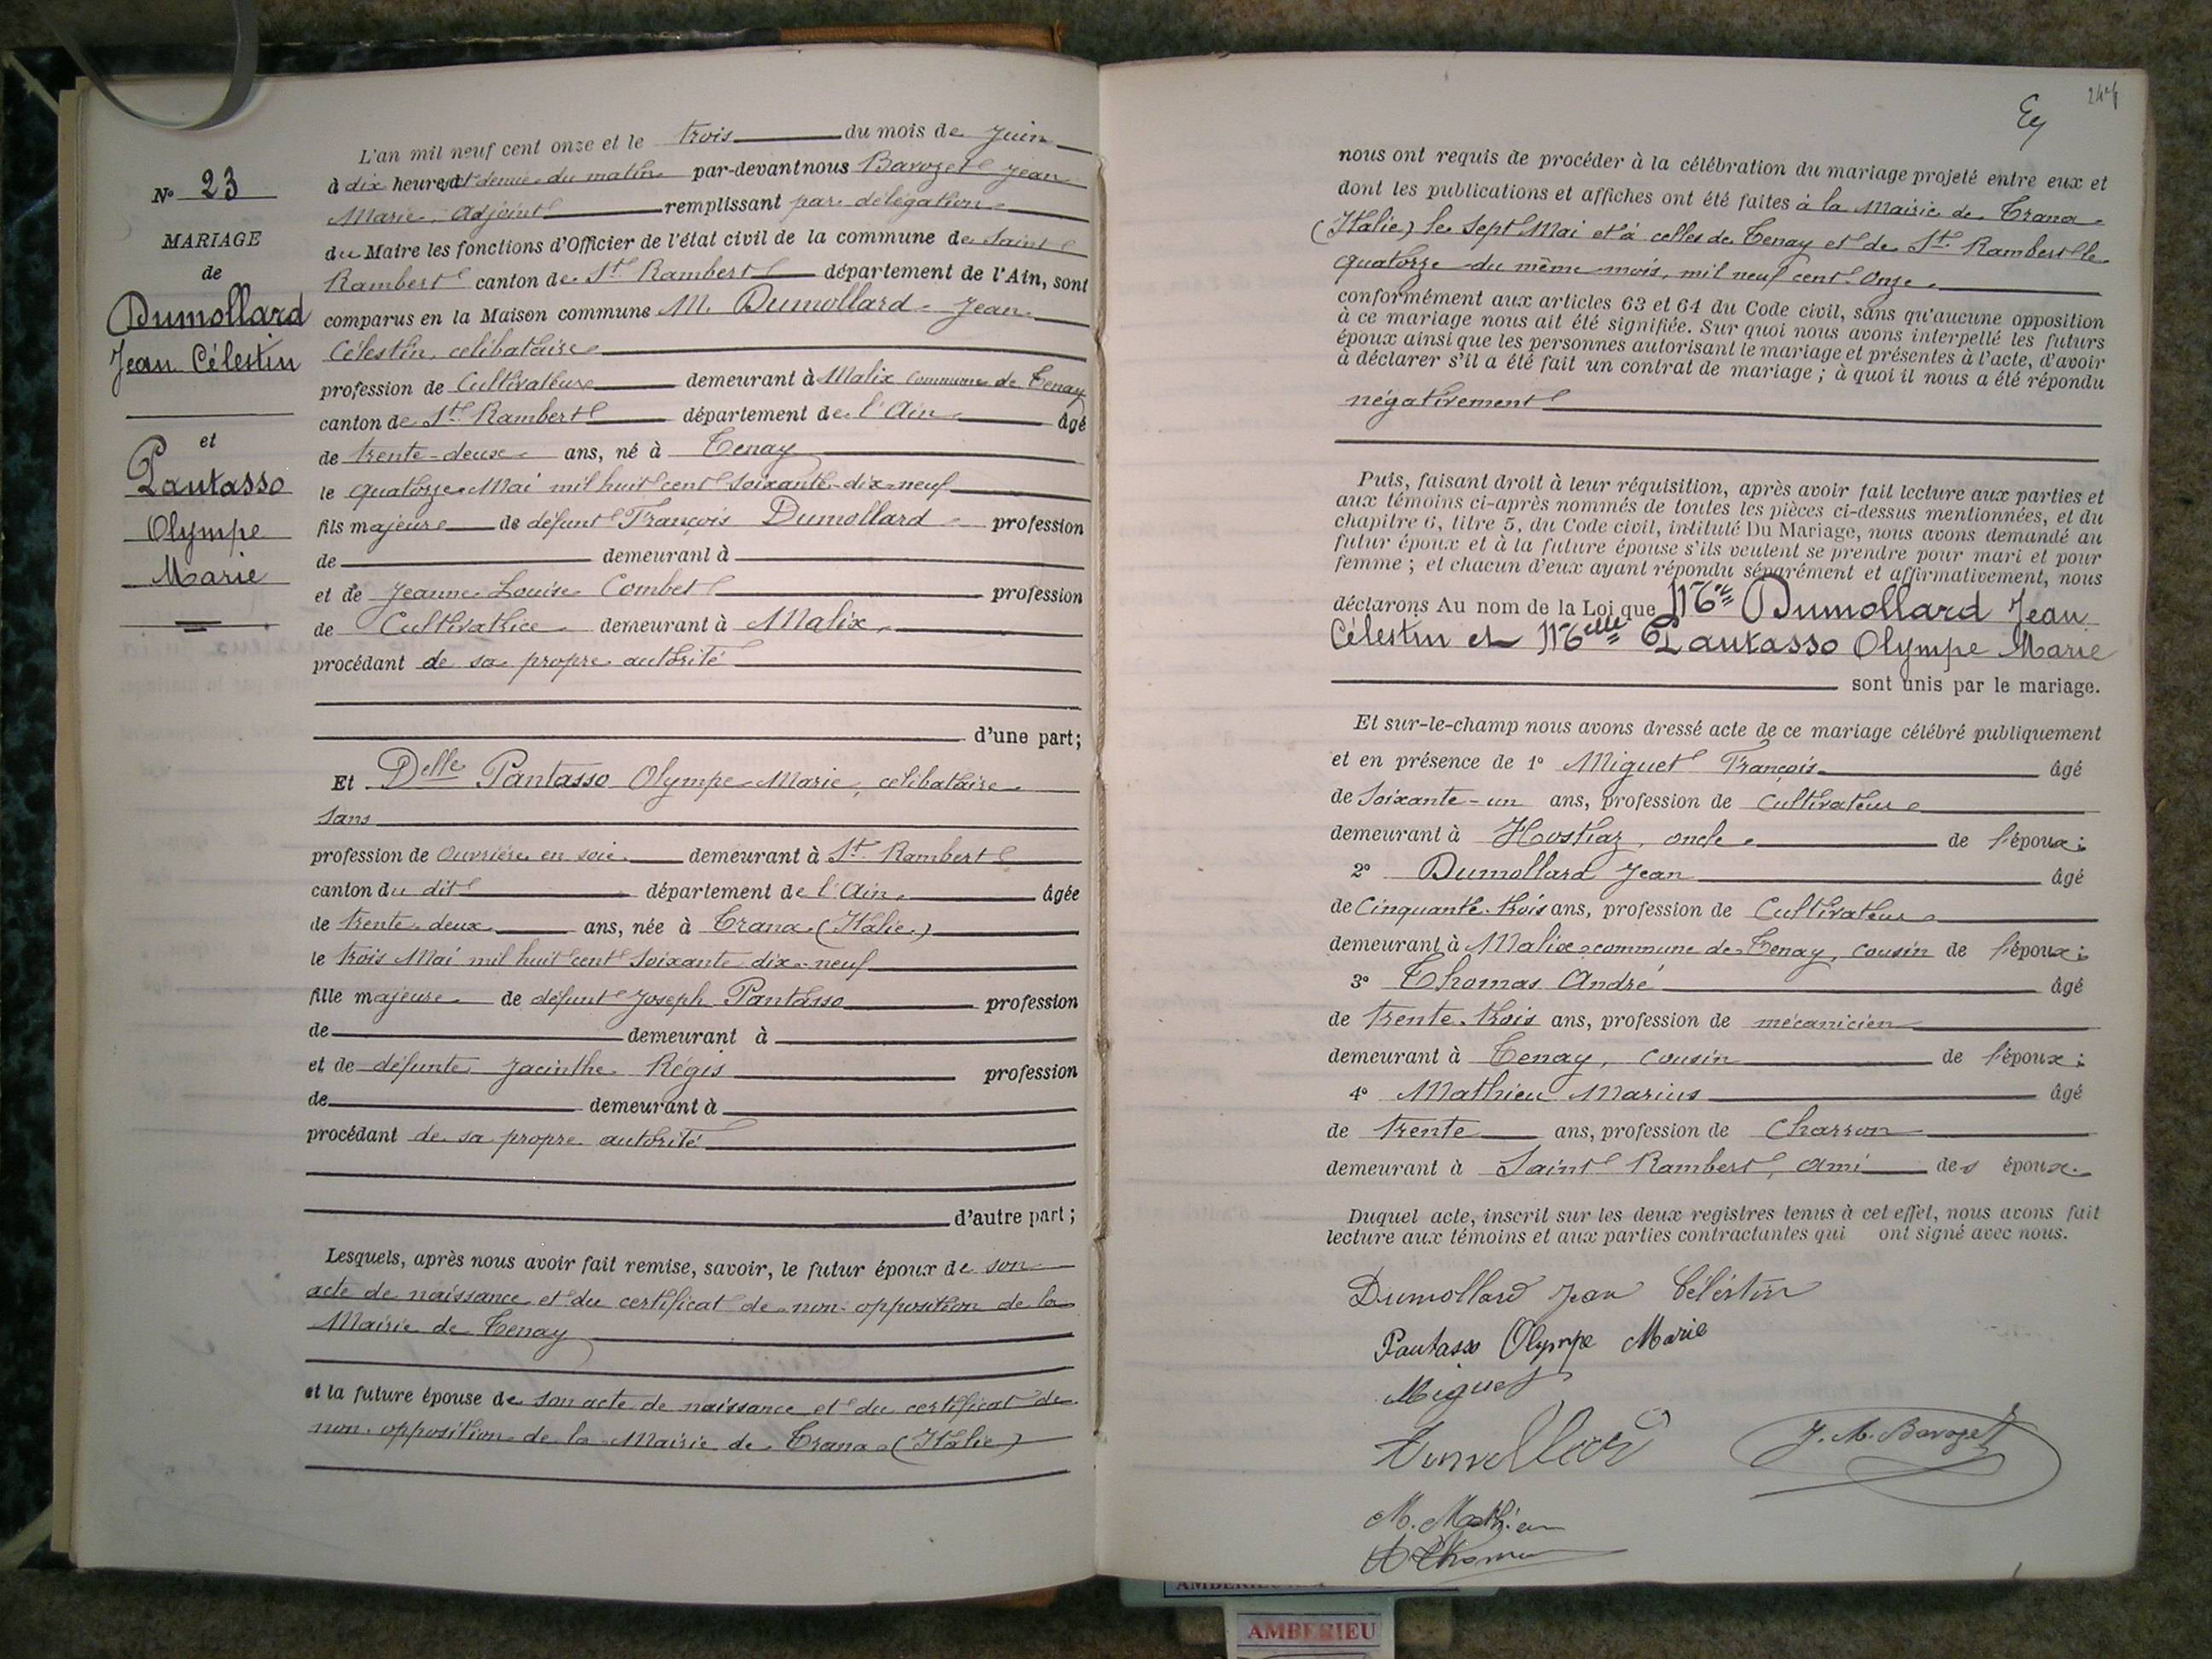 L'an mil neuf cent onze et le trois du mois de Juin
à dix heures et demie du matin par-devant nous Bavozet Jean
Marie, Adjoint remplissant par délégation
du Maire les fonctions d'Officier de l'état civil de la commune de Saint
Rambert canton de St Rambert département de l'Ain, sont
comparus en la Maison commune M. Dumollard Jean
Célestin, célibataire
profession de Cultivateur demeurant à Malix commune de Tenay
canton de St Rambert département de l'Ain âgé
de trente-deux ans, né à Tenay
le quatorze Mai mil huit cent soixante-dix-neuf
fils majeur de défunt François Dumollard profession
de demeurant à
et de Jeanne Louise Combet profession
de Cultivatrice demeurant à Malix,
procédant de sa propre autorité
d'une part;
Et Delle Pantasso Olympe Marie, célibataire
sans
profession de Ouvrière en soie demeurant à St Rambert
canton du dit département de l'Ain âgée
de trente-deux ans, née à Trana (Italie)
le trois Mai mil huit cent soixante dix-neuf
fille majeure de défunt Joseph Pantasso profession
de demeurant à
et de défunte Jacinthe Régis profession
de demeurant à
procédant de sa propre autorité
d'autre part;
Lesquels, après nous avoir fait remise, savoir, le futur époux de son
acte de naissance et du certificat de non-opposition de la
Mairie de Tenay
et la future épouse de son acte de naissance et du certificat de
non-opposition de la Mairie de Trana (Italie)
N° 23
MARIAGE
de
Dumollard
Jean Célestin
et
Pautasso
Olympe
Marie
247
nous ont requis de procéder à la célébration du mariage projeté entre eux et
dont les publications et affiches ont été faites à la Mairie de Trana
(Italie) le sept Mai et à celles de Tenay et de St Rambert le
quatorze du même mois, mil neuf cent onze
conformément aux articles 63 et 64 du Code civil, sans qu'aucune opposition
à ce mariage nous ait été signifiée. Sur quoi nous avons interpellé les futurs
époux ainsi que les personnes autorisant le mariage et présentes à l'acte, d'avoir
à déclarer s'il a été fait un contrat de mariage ; à quoi il nous a été répondu
négativement
Puis, faisant droit à leur réquisition, après avoir fait lecture aux parties et
aux témoins ci-après nommés de toutes les pièces ci-dessus mentionnées, et du
chapitre 6, titre 5, du Code civil, intitulé Du Mariage, nous avons demandé au
futur époux et à la future épouse s'ils veulent se prendre pour mari et pour
femme ; et chacun d'eux ayant répondu séparément et affirmativement, nous
déclarons Au nom de la Loi que Mr Dumollard Jean
Célestin et Melle Pautasso Olympe Marie
sont unis par le mariage.
Et sur-le-champ nous avons dressé acte de ce mariage célébré publiquement
et en présence de 1° Miguet François âgé
de soixante-un ans, profession de Cultivateur
demeurant à Hostiaz, oncle de l'époux;
2° Dumollard Jean âgé
de Cinquante-trois ans, profession de Cultivateur
demeurant à Malix commune de Tenay, cousin de l'époux;
3° Thomas André âgé
de trente-trois ans, profession de mécanicien
demeurant à Tenay, cousin de l'époux;
4° Mathieu Marius âgé
de trente ans, profession de Charron
demeurant à Saint Rambert, ami des époux.
Duquel acte, inscrit sur les deux registres tenus à cet effet, nous avons fait
lecture aux témoins et aux parties contractantes qui ont signé avec nous.
Dumollard Jean Célestin
Pautasso Olympe Marie
Miguet
J. M. Bavozet
M. Mathieu
A Thomas
AMBERIEU